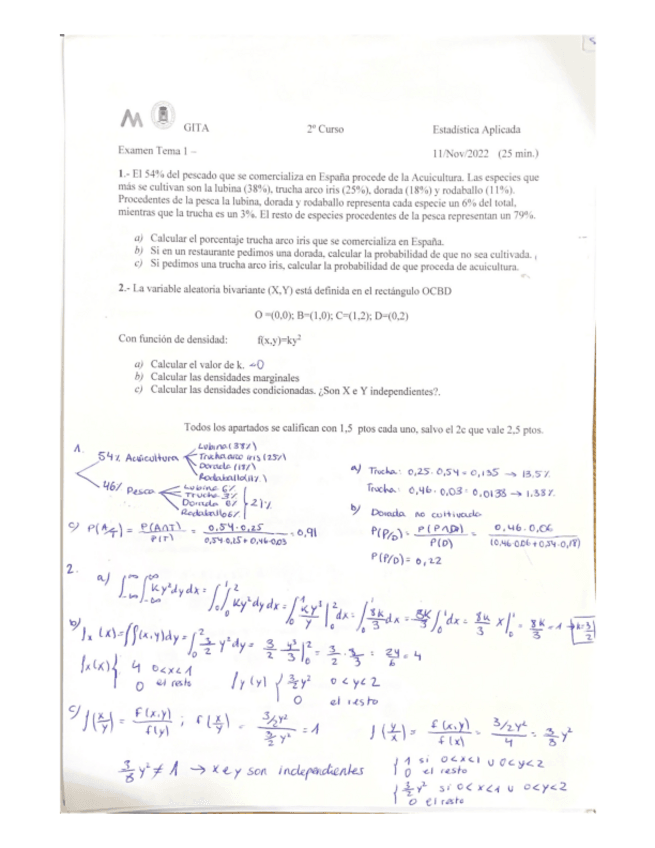 GITA 2º Curso Estadística Aplicada
Examen Tema 1 – 11/Nov/2022 (25 min.)
1.- El 54% del pescado que se comercializa en España procede de la Acuicultura. Las especies que
más se cultivan son la lubina (38%), trucha arco iris (25%), dorada (18%) y rodaballo (11%).
Procedentes de la pesca la lubina, dorada y rodaballo representa cada especie un 6% del total,
mientras que la trucha es un 3%. El resto de especies procedentes de la pesca representan un 79%.
a) Calcular el porcentaje trucha arco iris que se comercializa en España.
b) Si en un restaurante pedimos una dorada, calcular la probabilidad de que no sea cultivada.
c) Si pedimos una trucha arco iris, calcular la probabilidad de que proceda de acuicultura.
2.- La variable aleatoria bivariante (X,Y) está definida en el rectángulo OCBD
O =(0,0); B=(1,0); C=(1,2); D=(0,2)
Con función de densidad: f(x,y)=ky²
a) Calcular el valor de k.
b) Calcular las densidades marginales
c) Calcular las densidades condicionadas. ¿Son X e Y independientes?.
Todos los apartados se califican con 1,5 ptos cada uno, salvo el 2c que vale 2,5 ptos.
1.
54% Acuicultura
Lubina (38%)
Trucha arco iris (25%)
Dorada (18%)
Rodaballo (11%)
46% Pesca
Lubina 6%
Trucha 3%
Dorada 6%
Rodaballo 6%
} 21%
a) Trucha: 0,25·0,54 = 0,135 → 13,5%
Trucha: 0,46·0,03 = 0,0138 → 1,38%
b) Dorada no cultivada
P(P/D) = P(P∩D)/P(D) = 0,46·0,06/(0,46·0,06+0,54·0,18)
P(P/D) = 0,22
c) P(A/T) = P(A∩T)/P(T) = 0,54·0,25/0,54·0,25+0,46·0,03 = 0,91
2.
a) ∫∫ ky² dy dx = ∫∫ ky² dy dx
8k/3 dx = 8k/3 ∫ dx = 8k/3 x = 8k/3 = 1
b) fx (x) = ∫ f(x,y) dy = ∫ 3/2 y² dy = 3/2 y³/3 = 3/2 · 8/3 = 24/6 = 4
fx(x) { 4 0<x<1
0 el resto
fy (y) { 3/2 y² 0<y<2
0 el resto
c) f(x/y) = f(x,y)/f(y) ; f(x/y) = 3/2y²/3/2y² = 1
f(y/x) = f(x,y)/f(x) = 3/2y²/4 = 3/8 y²
3/8 y² ≠ 1 → x e y son independientes
{ 1 si 0<x<1 ∪ 0<y<2
0 el resto
{ 3/2 y² si 0<x<1 ∪ 0<y<2
0 el resto